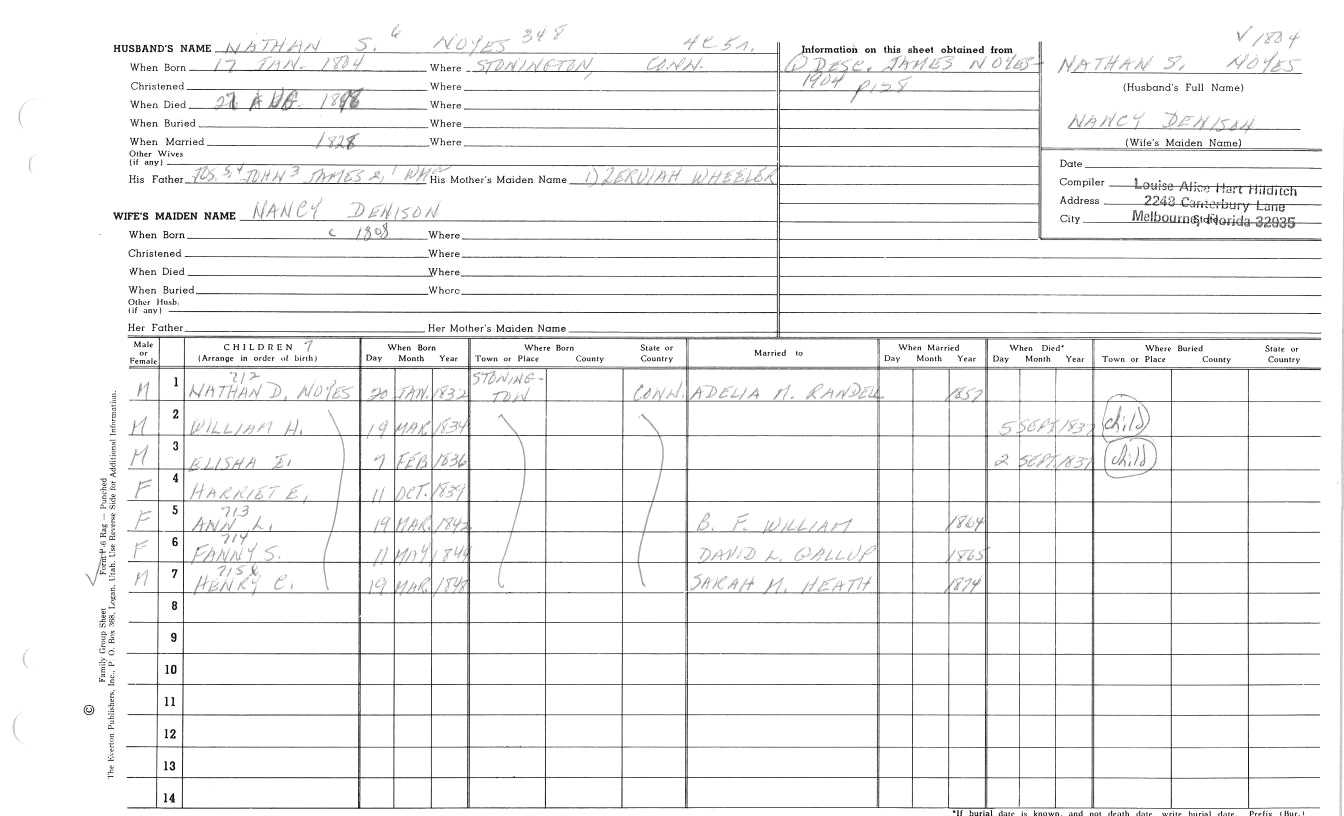 HUSBAND'S NAME NATHAN S. 6 NOYES 348 4C5n.
When Born 17 JAN. 1804 Where STONINGTON, CONN.
Christened Where
When Died 27 AUG. 1898 Where
When Buried Where
When Married 1828 Where
Other Wives
(if any)
His Father JOS. 5,4 JOHN 3 JAMES 2, 1 His Mother's Maiden Name 1) ZERVIAH WHEELER
WIFE'S MAIDEN NAME NANCY DENISON
When Born c 1808 Where
Christened Where
When Died Where
When Buried Where
Other Husb.
(if any)
Her Father Her Mother's Maiden Name
Information on this sheet obtained from
(1) DESC. JAMES NOYES-
1904 p128
√ 1804
NATHAN S. NOYES
(Husband's Full Name)
NANCY DENISON
(Wife's Maiden Name)
Date
Compiler Louise Alice Hart Hilditch
Address 2248 Canterbury Lane
City Melbourne, Florida 32935 State
Male or Female CHILDREN 7 (Arrange in order of birth) When Born Day Month Year Where Born Town or Place County State or Country Married to When Married Day Month Year When Died* Day Month Year Where Buried Town or Place County State or Country
M 1 712 NATHAN D. NOYES 20 JAN. 1832 STONING-TON CONN. ADELIA M. RANDELL 1857
M 2 WILLIAM H. 19 MAR. 1834 5 SEPT. 1837 child
M 3 ELISHA E. 7 FEB 1836 2 SEPT. 1837 child
F 4 HARRIET E, 11 OCT. 1839
F 5 713 ANN L. 19 MAR. 1842 B. F. WILLIAM 1864
F 6 714 FANNY S. 11 MAY, 1844 DAVID L. GALLUP 1865
M 7 715 HENRY C. 19 MAR. 1848 SARAH M. HEATH 1874
8
9
10
11
12
13
14
*If burial date is known, and not death date, write burial date. Prefix (Bur.)
Family Group Sheet Form P-6 Rag — Punched
© The Everton Publishers, Inc., P. O. Box 368, Logan, Utah. Use Reverse Side for Additional Information.